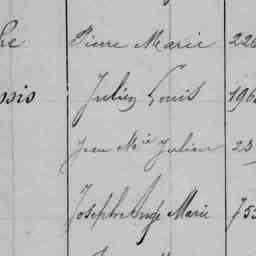 Pierre Marie 226
Julien Louis 196
Jean Mie Julien 23
Joseph Ange Marie 753